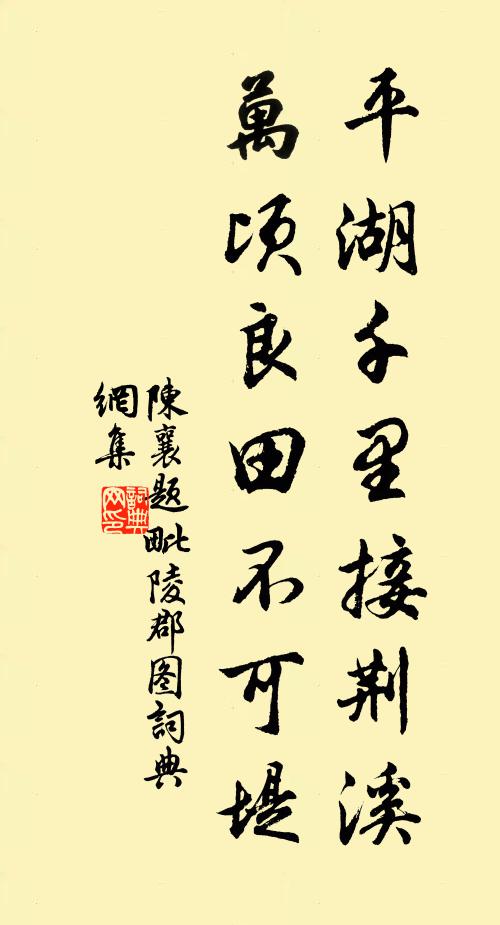 平湖千里接荆溪
萬頃良田不可堤
陳襄題毗陵郡图詞典
網集
詞典网印